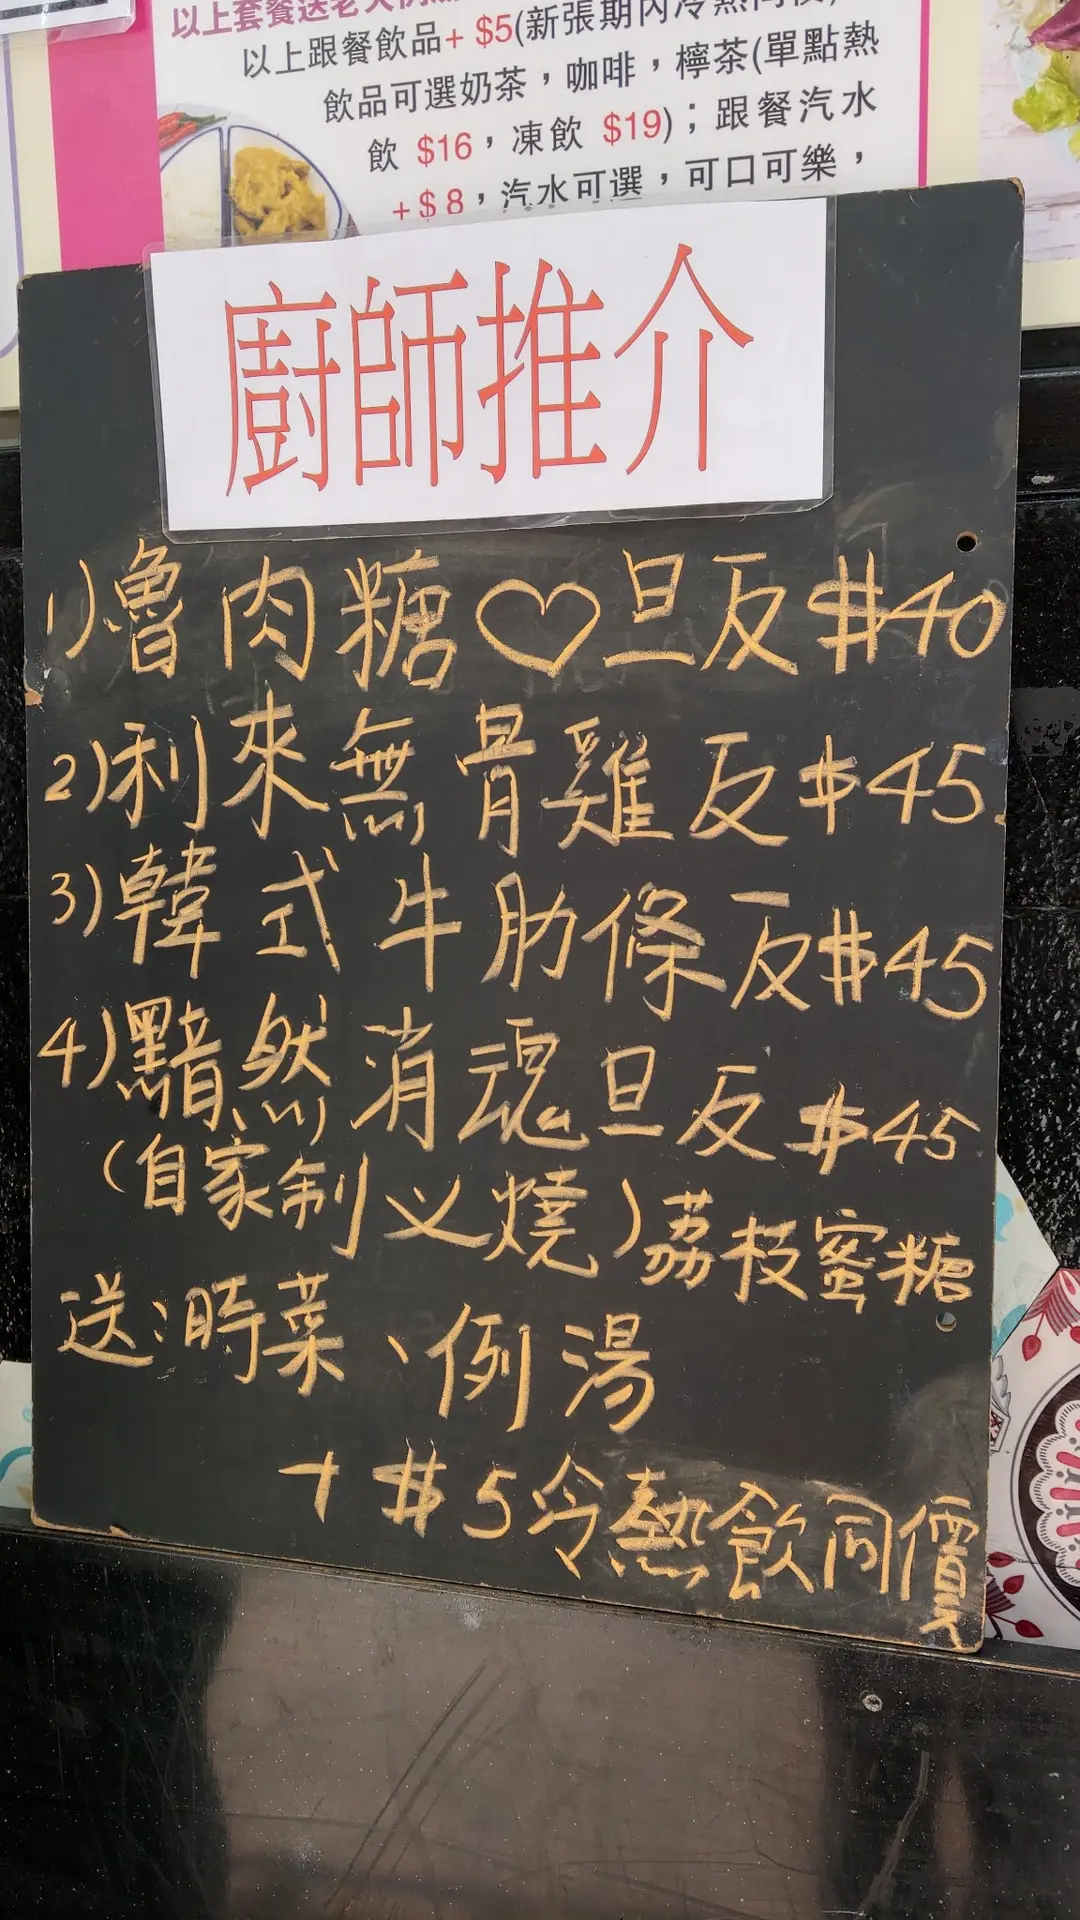 以上跟餐飲品+ $5(新張期內冷熱同價)
飲品可選奶茶，咖啡，檸茶(單點熱
飲 $16，凍飲 $19)；跟餐汽水
+$8，汽水可選，可口可樂，
廚師推介
1)魯肉糖♡旦反$40
2)利來無骨雞反$45
3)韓式牛肋條反$45
4)黯然消魂旦反$45
(自家制乂燒)荔枝蜜糖
送:時菜、例湯
+$5冷熱飲同價